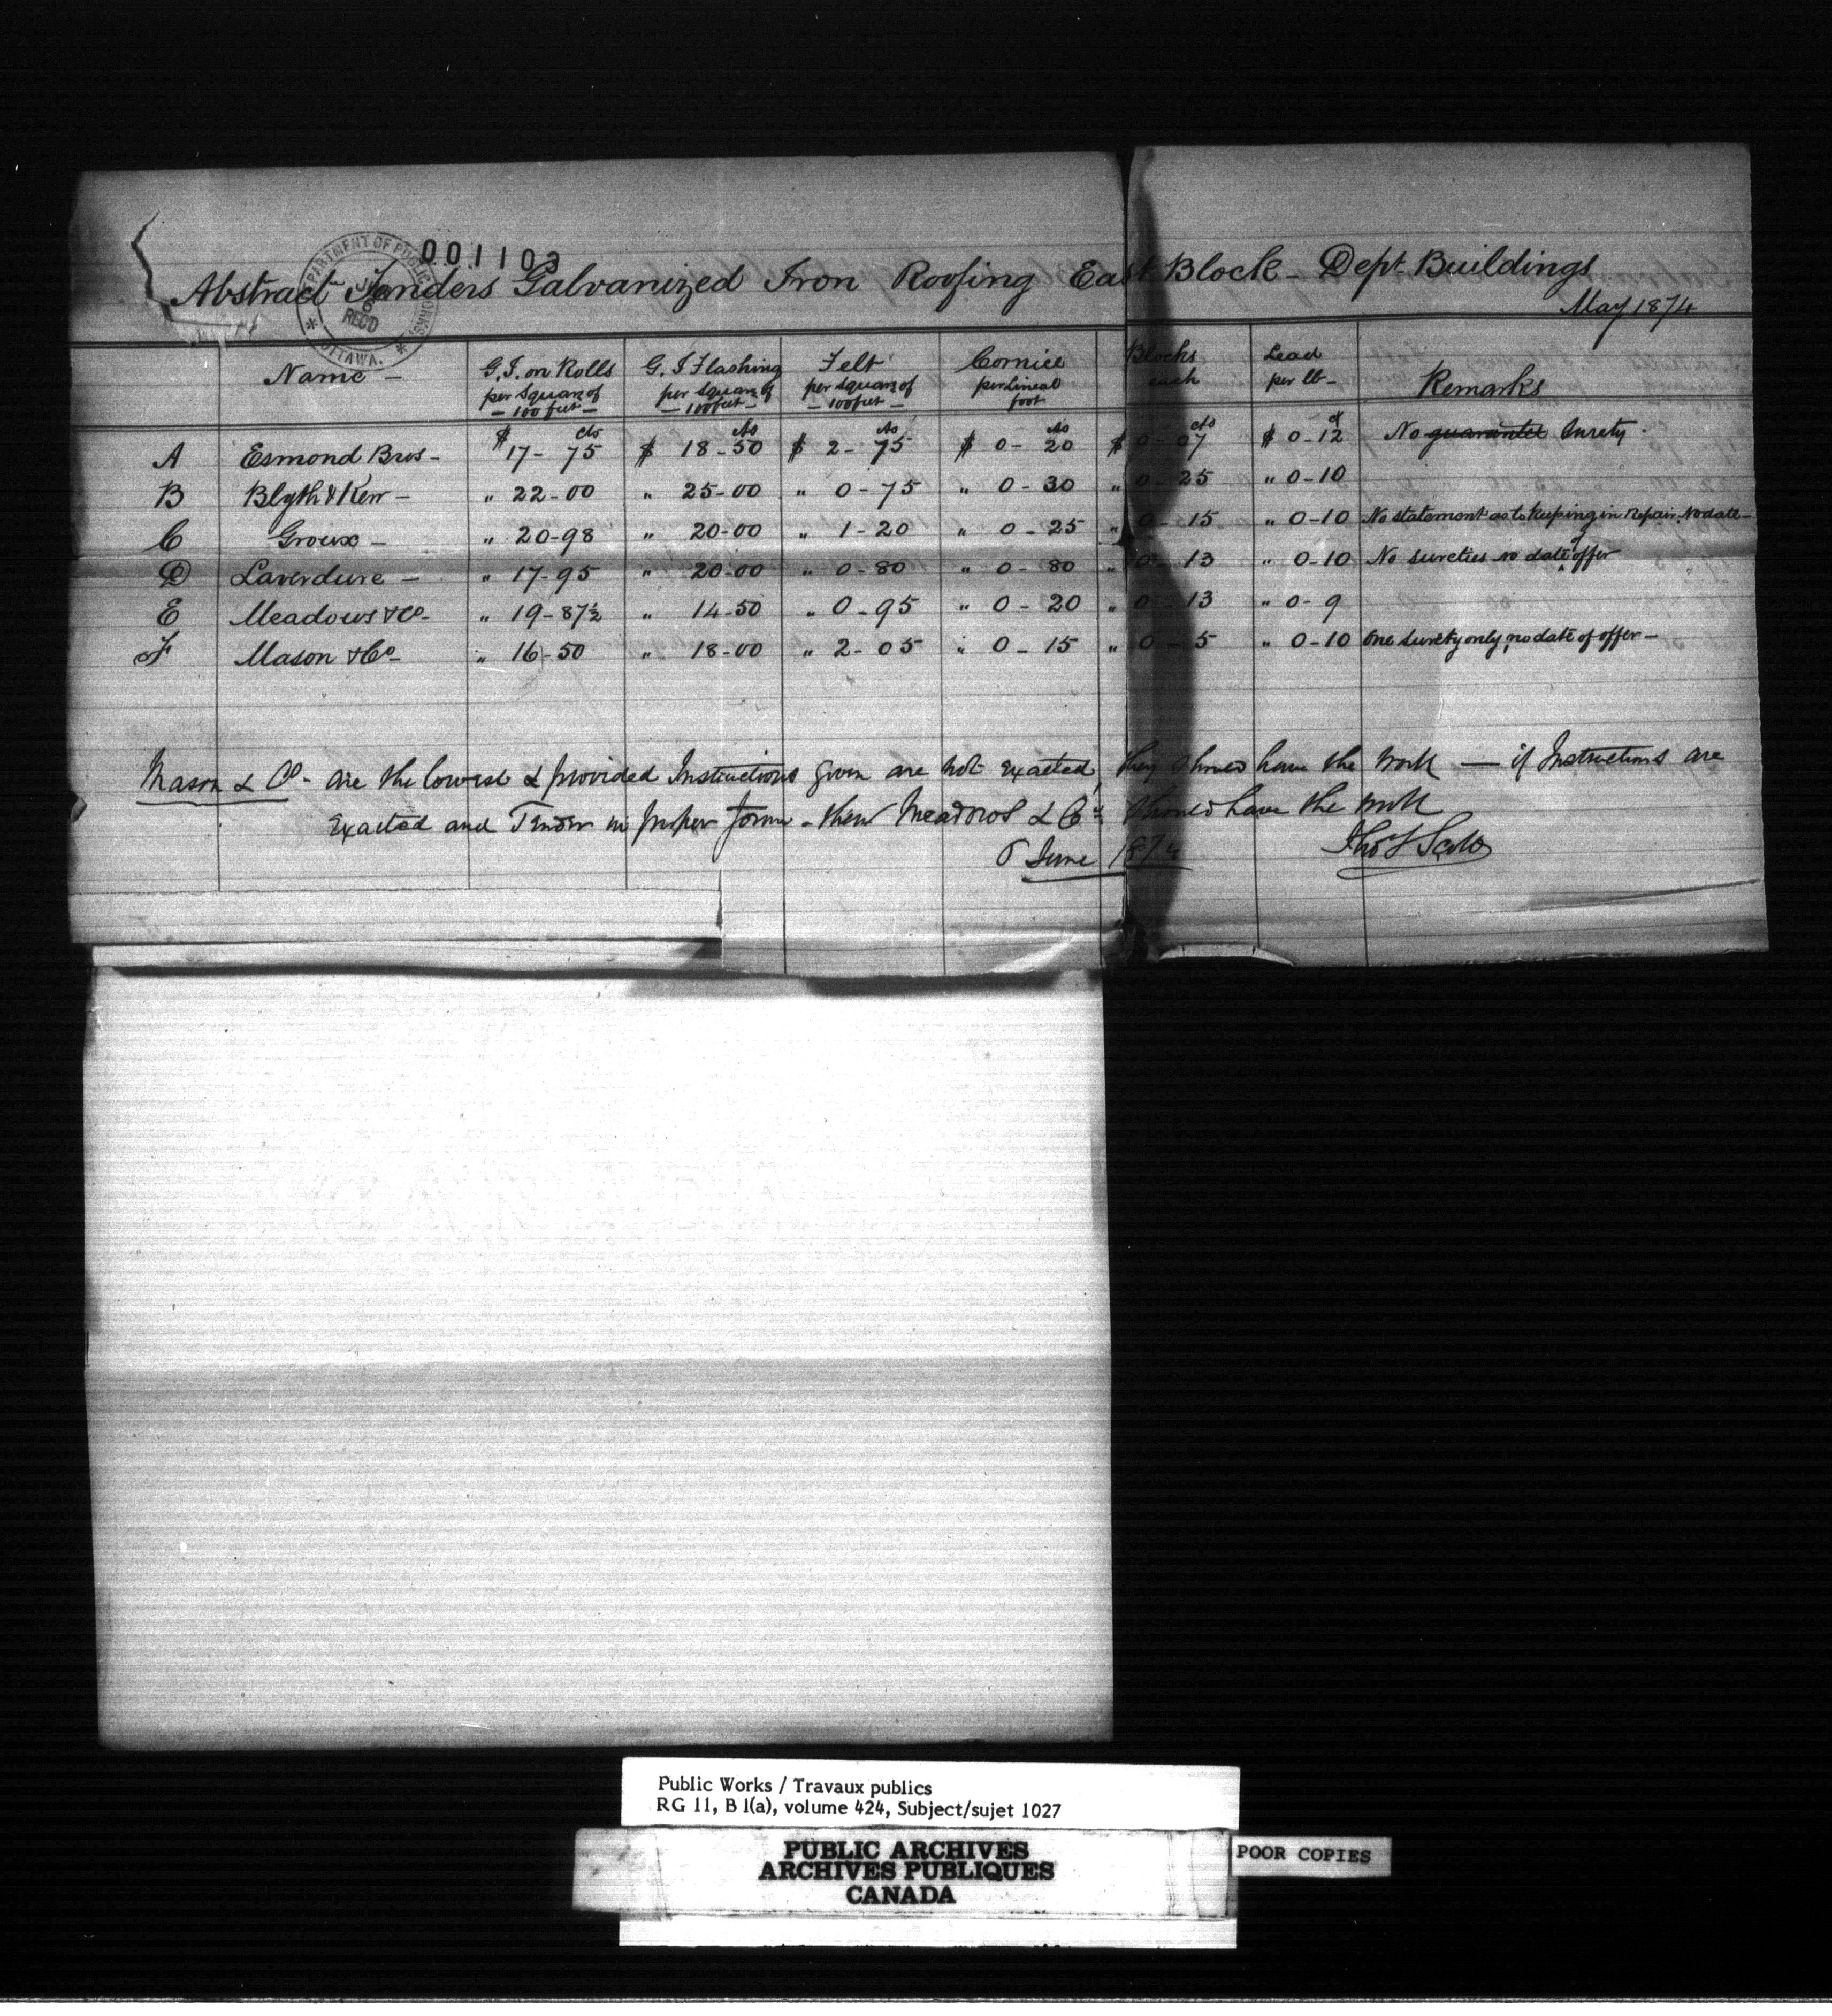 001103
DEPARTMENT OF PUBLIC WORKS, OTTAWA. 6 REC'D
Abstract Tenders Galvanized Iron Roofing East Block - Dept. Buildings
May 1874
Name - G. I. on Rolls per square of - 100 feet - G. I. Flashing per square of - 100 feet - Felt per square of - 100 feet - Cornice per Lineal foot Blocks each Lead per lb - Remarks
A Esmond Bros - $17 - 75 cts $ 18 - 50 $ 2 - 75 $ 0 - 20 $ 0 - 07 cts $ 0 - 12 No guarantee Surety -
B Blyth & Kerr - " 22-00 " 25-00 " 0-75 " 0-30 " 0-25 " 0-10
C Groux - " 20-98 " 20-00 " 1-20 " 0-25 " 0-15 " 0-10 No statement as to keeping in repair. No date -
D Laverdure - " 17-95 " 20-00 " 0-80 " 0-80 " 0-13 " 0-10 No sureties no date of offer
E Meadows & Co - " 19-87½ " 14-50 " 0-95 " 0-20 " 0-13 " 0-9
F Mason & Co - " 16-50 " 18-00 " 2-05 " 0-15 " 0-5 " 0-10 One surety only, no date of offer -
Mason & Co - are the lowest & provided Instructions given are not exacted, they should have the work — if Instructions are
exacted and Tender in proper form - then Meadows & Co should have the work
6 June 1874 Thos S Scott
Public Works / Travaux publics
RG 11, B 1(a), volume 424, Subject/sujet 1027
PUBLIC ARCHIVES
ARCHIVES PUBLIQUES
CANADA
POOR COPIES